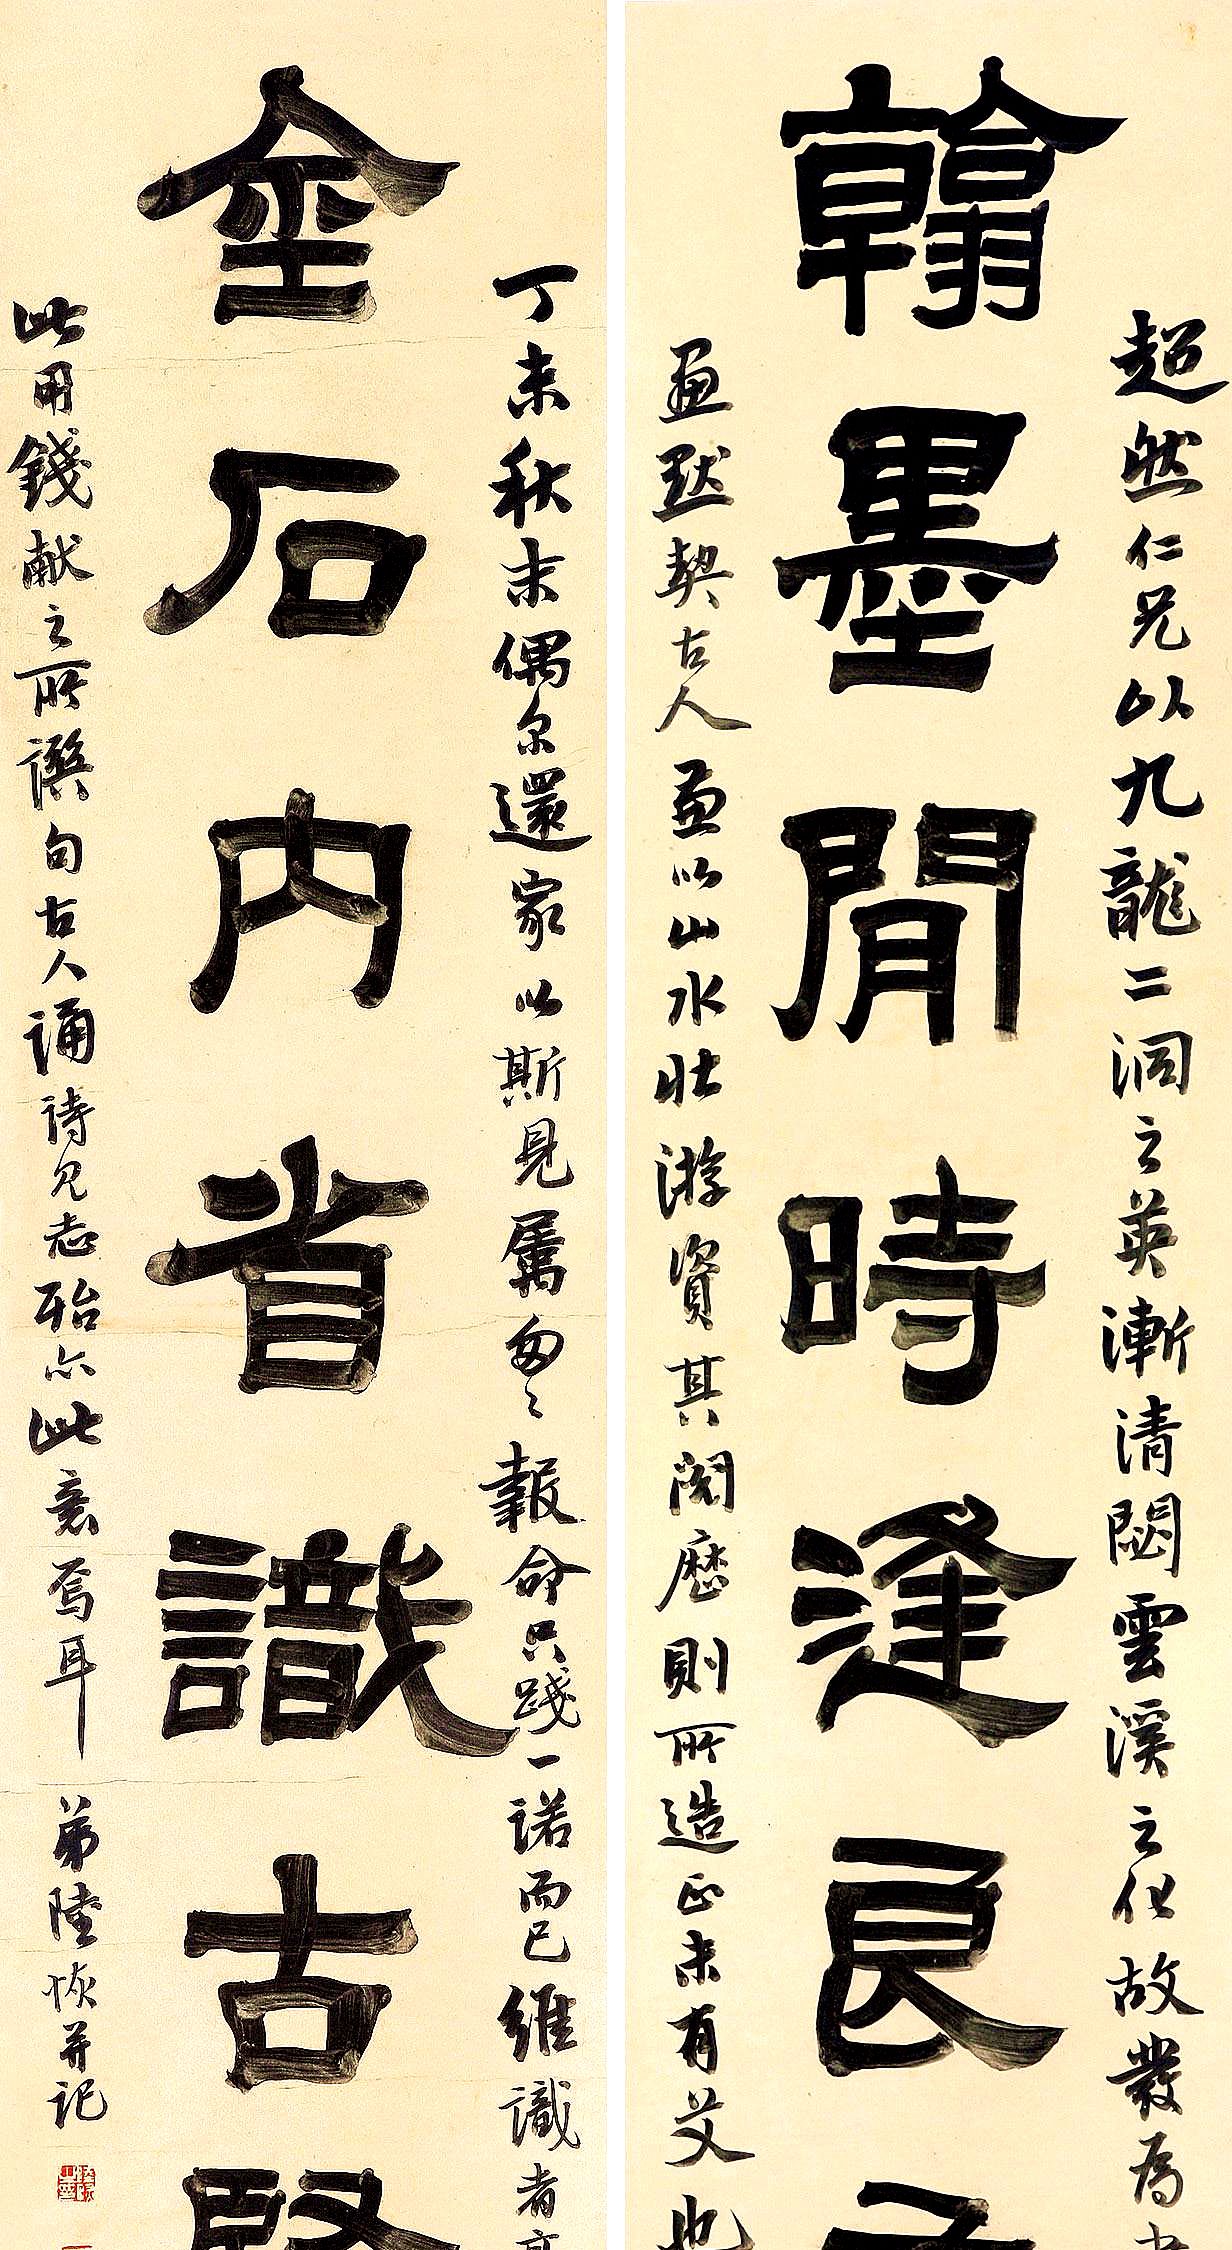 超然仁兄以九龍二洞之英漸清閟雲溪之化故發為
翰墨閒時逢良
畫默契古人畫以山水壯游資其閱歷則所造正未有艾也
丁未秋末偶尔還家以斯見屬匆匆報命只踐一諾而已維識者
金石內省識古賢
此用錢献之所譔句古人誦詩見志聆亦此意焉耳 弟陸恢并記